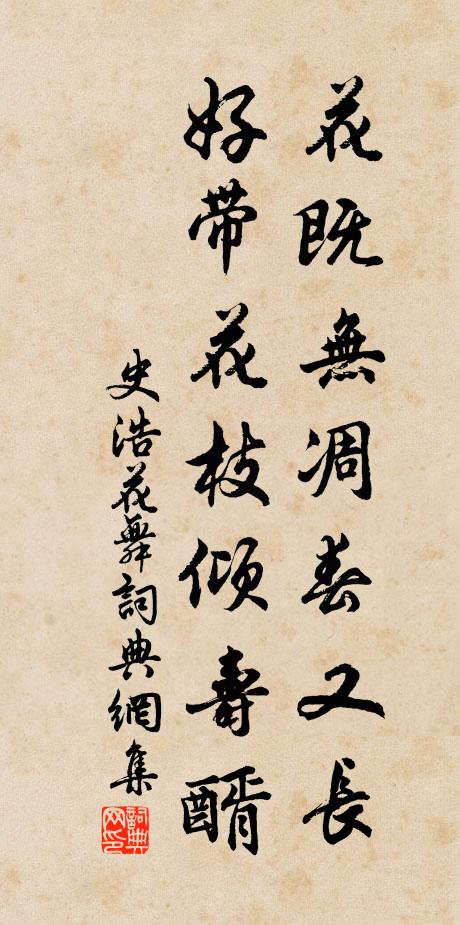 花既無凋春又長
好带花枝倾壽醑
史浩花舞詞典網集
詞典网印